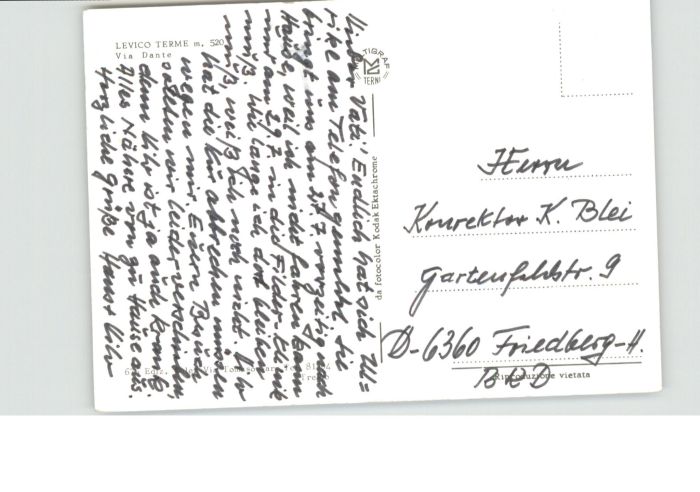 LEVICO TERME m. 520
Via Dante
MULTIGRAF
TERNI
da fotocolor Kodak Ektachrome
Vati! Endlich hat sich Ul=
rike am Telefon gemeldet. Sie
bringt uns am 7 vorzeitig nach
Hause, weil ich nicht fahren kann
und am 29.7 in die Filder-Klinik
muß. Wie lange ich dort bleiben
muß, weiß ich noch nicht. Uli
hat die Kur abbrechen müssen
wegen mir. Euern Besuch
wir leider verschieben,
denn Uli ist ja auch krank.
Alles Nähere von zu Hause aus.
Herzliche Grüße Hans + Uli
Herrn
Konrektor K. Blei
Gartenfeldstr. 9
D-6360 Friedberg-H.
BRD
Riproduzione vietata